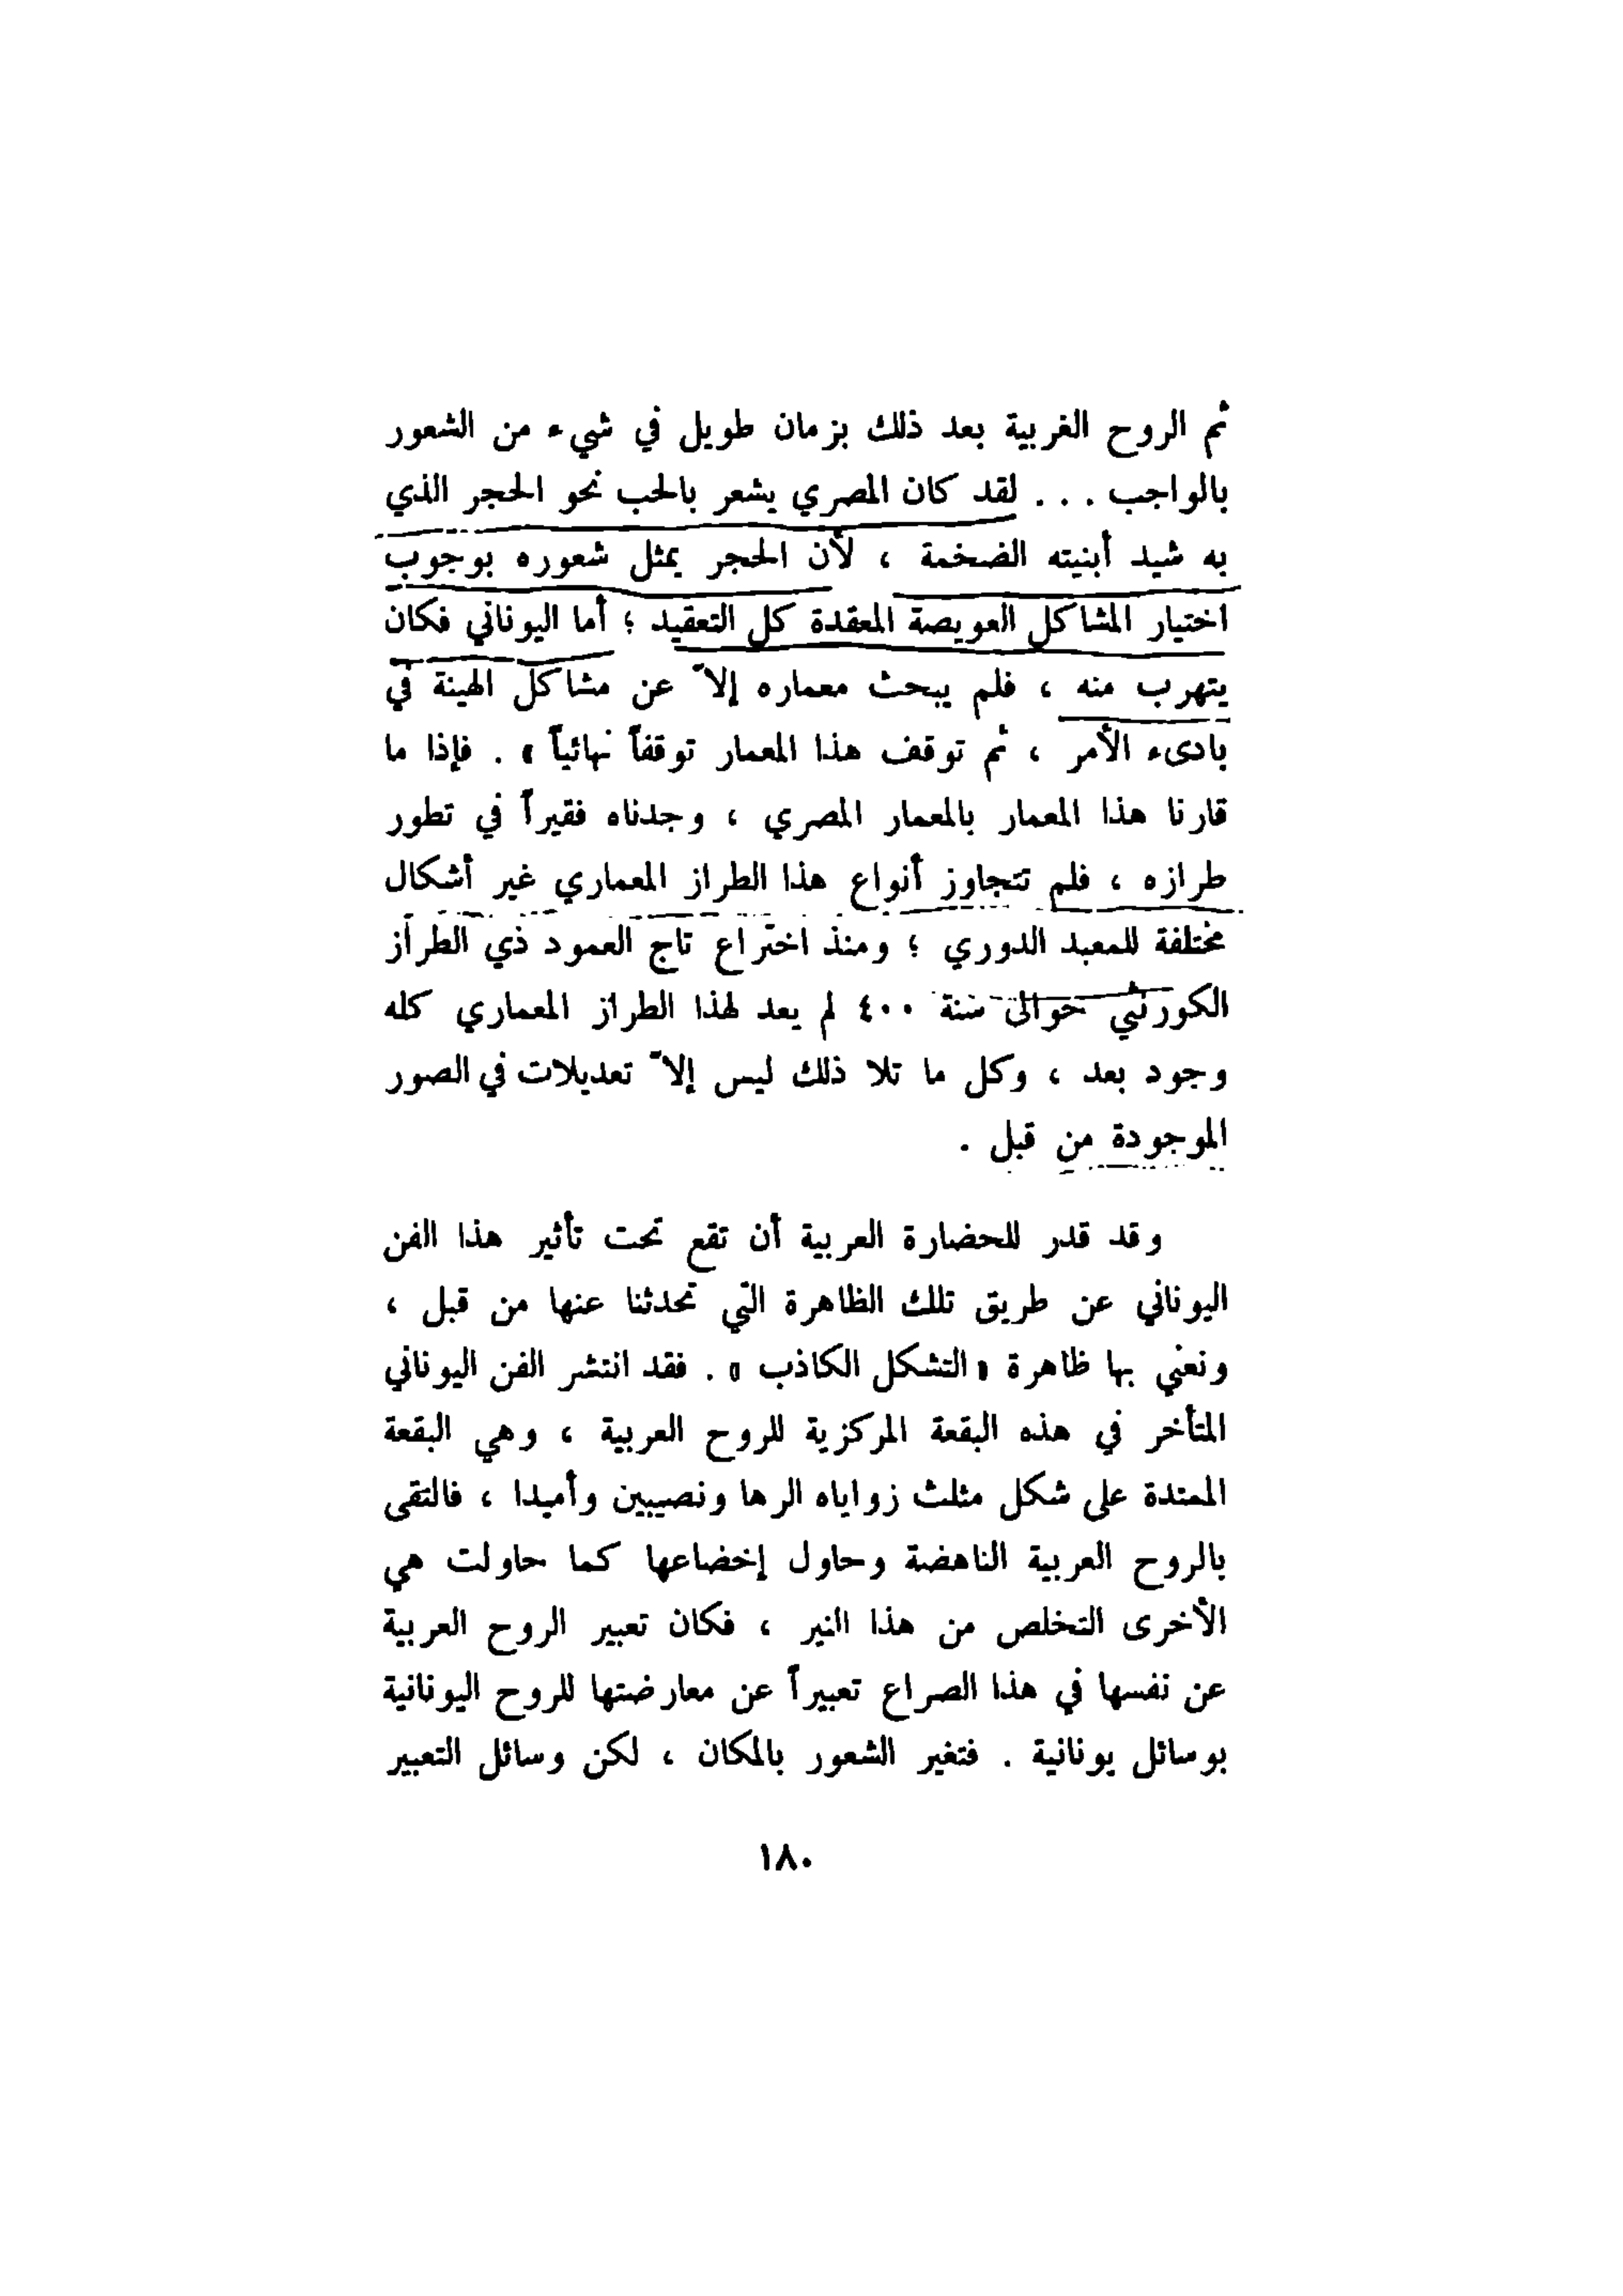 ثم الروح الغربية بعد ذلك بزمان طويل في شيء من الشعور
بالواجب . . . لقد كان المصري يشعر بالحب نحو الحجر الذي
به شيد أبنيته الضخمة ، لأن الحجر يمثل شعوره بوجوب
اختيار المشاكل العويصة المعقدة كل التعقيد ؛ أما اليوناني فكان
يتهرب منه ، فلم يبحث معماره إلاّ عن مشاكل الهينة في
بادىء الأمر ، ثم توقف هذا المعمار توقفاً نهائياً » . فإذا ما
قارنا هذا المعمار بالمعمار المصري ، وجدناه فقيراً في تطور
طرازه ، فلم تتجاوز أنواع هذا الطراز المعماري غير أشكال
مختلفة للمعبد الدوري ؛ ومنذ اختراع تاج العمود ذي الطراز
الكورنثي حوالى سنة ٤٠٠ لم يعد لهذا الطراز المعماري كله
وجود بعد ، وكل ما تلا ذلك ليس إلاّ تعديلات في الصور
الموجودة من قبل .
وقد قدر للحضارة العربية أن تقع تحت تأثير هذا الفن
اليوناني عن طريق تلك الظاهرة التي تحدثنا عنها من قبل ،
ونعني بها ظاهرة « التشكل الكاذب » . فقد انتشر الفن اليوناني
المتأخر في هذه البقعة المركزية للروح العربية ، وهي البقعة
الممتدة على شكل مثلث زواياه الرها ونصيبين وأميدا ، فالتقى
بالروح العربية الناهضة وحاول إخضاعها كما حاولت هي
الأخرى التخلص من هذا النير ، فكان تعبير الروح العربية
عن نفسها في هذا الصراع تعبيراً عن معارضتها للروح اليونانية
بوسائل يونانية . فتغير الشعور بالمكان ، لكن وسائل التعبير
١٨٠